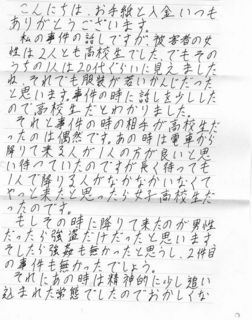 こんにちは、お手紙と入金いつも
ありがとうございます。
私の事件の話しですが、被害者の女
性は2人とも高校生でした でもその
うちの1人は20才ぐらいに見えました
ね それでも服装が若いかんじだった
と思います。事件の時に話しを少ししたの
で高校生だとわかりました。
それと事件の時の相手が高校生だ
ったのは偶然です。あの時は電車から
降りて来る人が1人の方が良いと思
い待っていたのですが長く待っても
1人で降りる人がなかなかいなくて
やっと来たと思ったら女子高校生だ
ったのです。
もしその時に降りて来たのが男性
だったら強盗だけだったと思います
そしたら強姦も無かったと思うし、2件目
の事件も無かったでしょう。
それにあの時は精神的に少し追い
込まれた常態でしたのでおかしくな